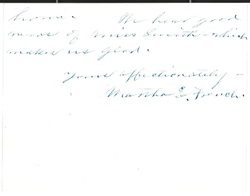 home. We hear good
news of Miss Smith which
makes us glad.
Yours affectionately
Martha E. French.